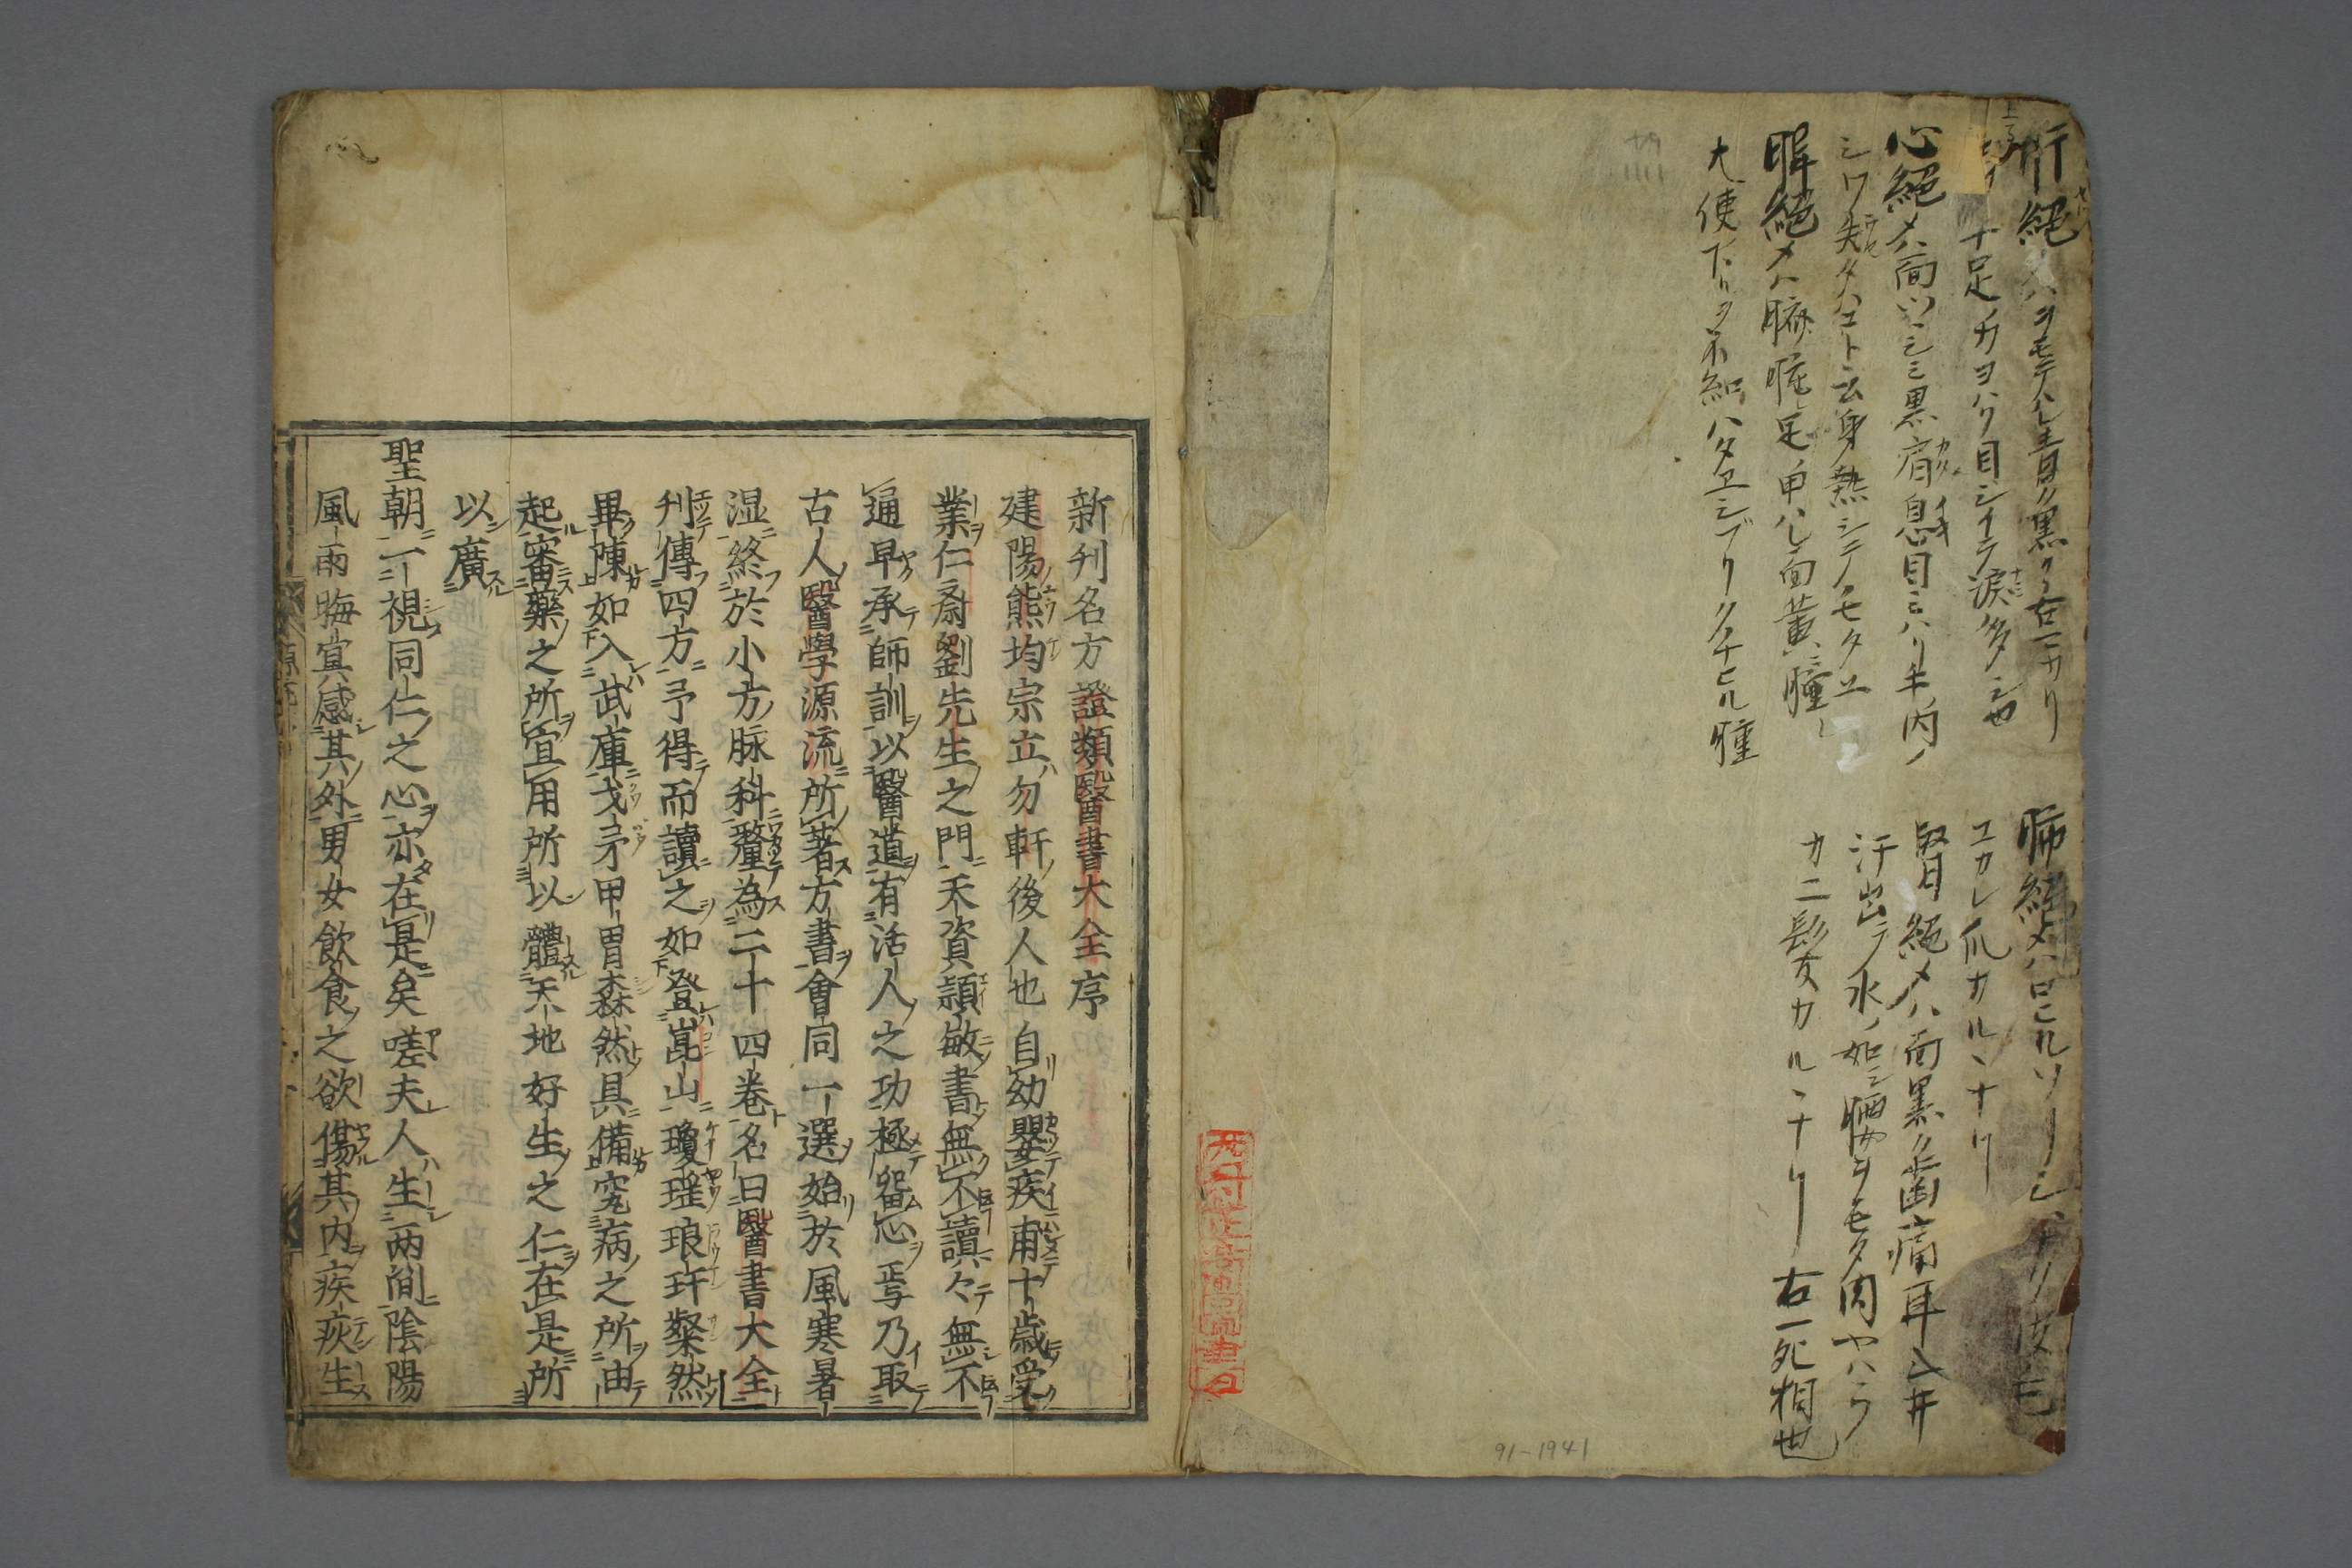 肝絶メハヲモテハレ青ク黒クシ在ニカリ
十足ノカヨハク目シイテ涙多シ也
心絶メハ面ツシミ黒肩息目ミハリ手ノ内ノ
シワ失タハコト云身熱シテノモタユ
脾絶メハ臍腫足ノ甲ハレ面黄ニ腫レ
大便下リヲ不知ハタヱシブリクチヒル腫
肺絶メハ口
エカレ爪カルヽナリ
腎絶メハ面黒ク歯痛耳
汗出テ水ノ如シ腰ヲモタ肉ヤハラ
カニ髪カルヽナリ 右一死相也
91-1941
新刋名方證類醫書大全序
建陽熊均宗立勿軒後人也自幼嬰疾甫十歳受
業仁斎劉先生之門天資頴敏書無不讀々無不
通早承師訓以醫道有活人之功極留心焉乃取
古人醫學源流所著方書會同一選始於風寒暑
湿終於小方脉科釐為二十四卷名曰醫書大全
刋傳四方予得而讀之如登崑山瓊瑤琅玕粲然
畢陳如入武庫戈矛甲冑森然具備究病之所由
起審藥之所宜用所以體天地好生之仁在是所
以廣
聖朝一視同仁之心亦在是矣嗟夫人生兩間陰陽
風雨晦冥感其外男女飲食之欲傷其内疾疢生